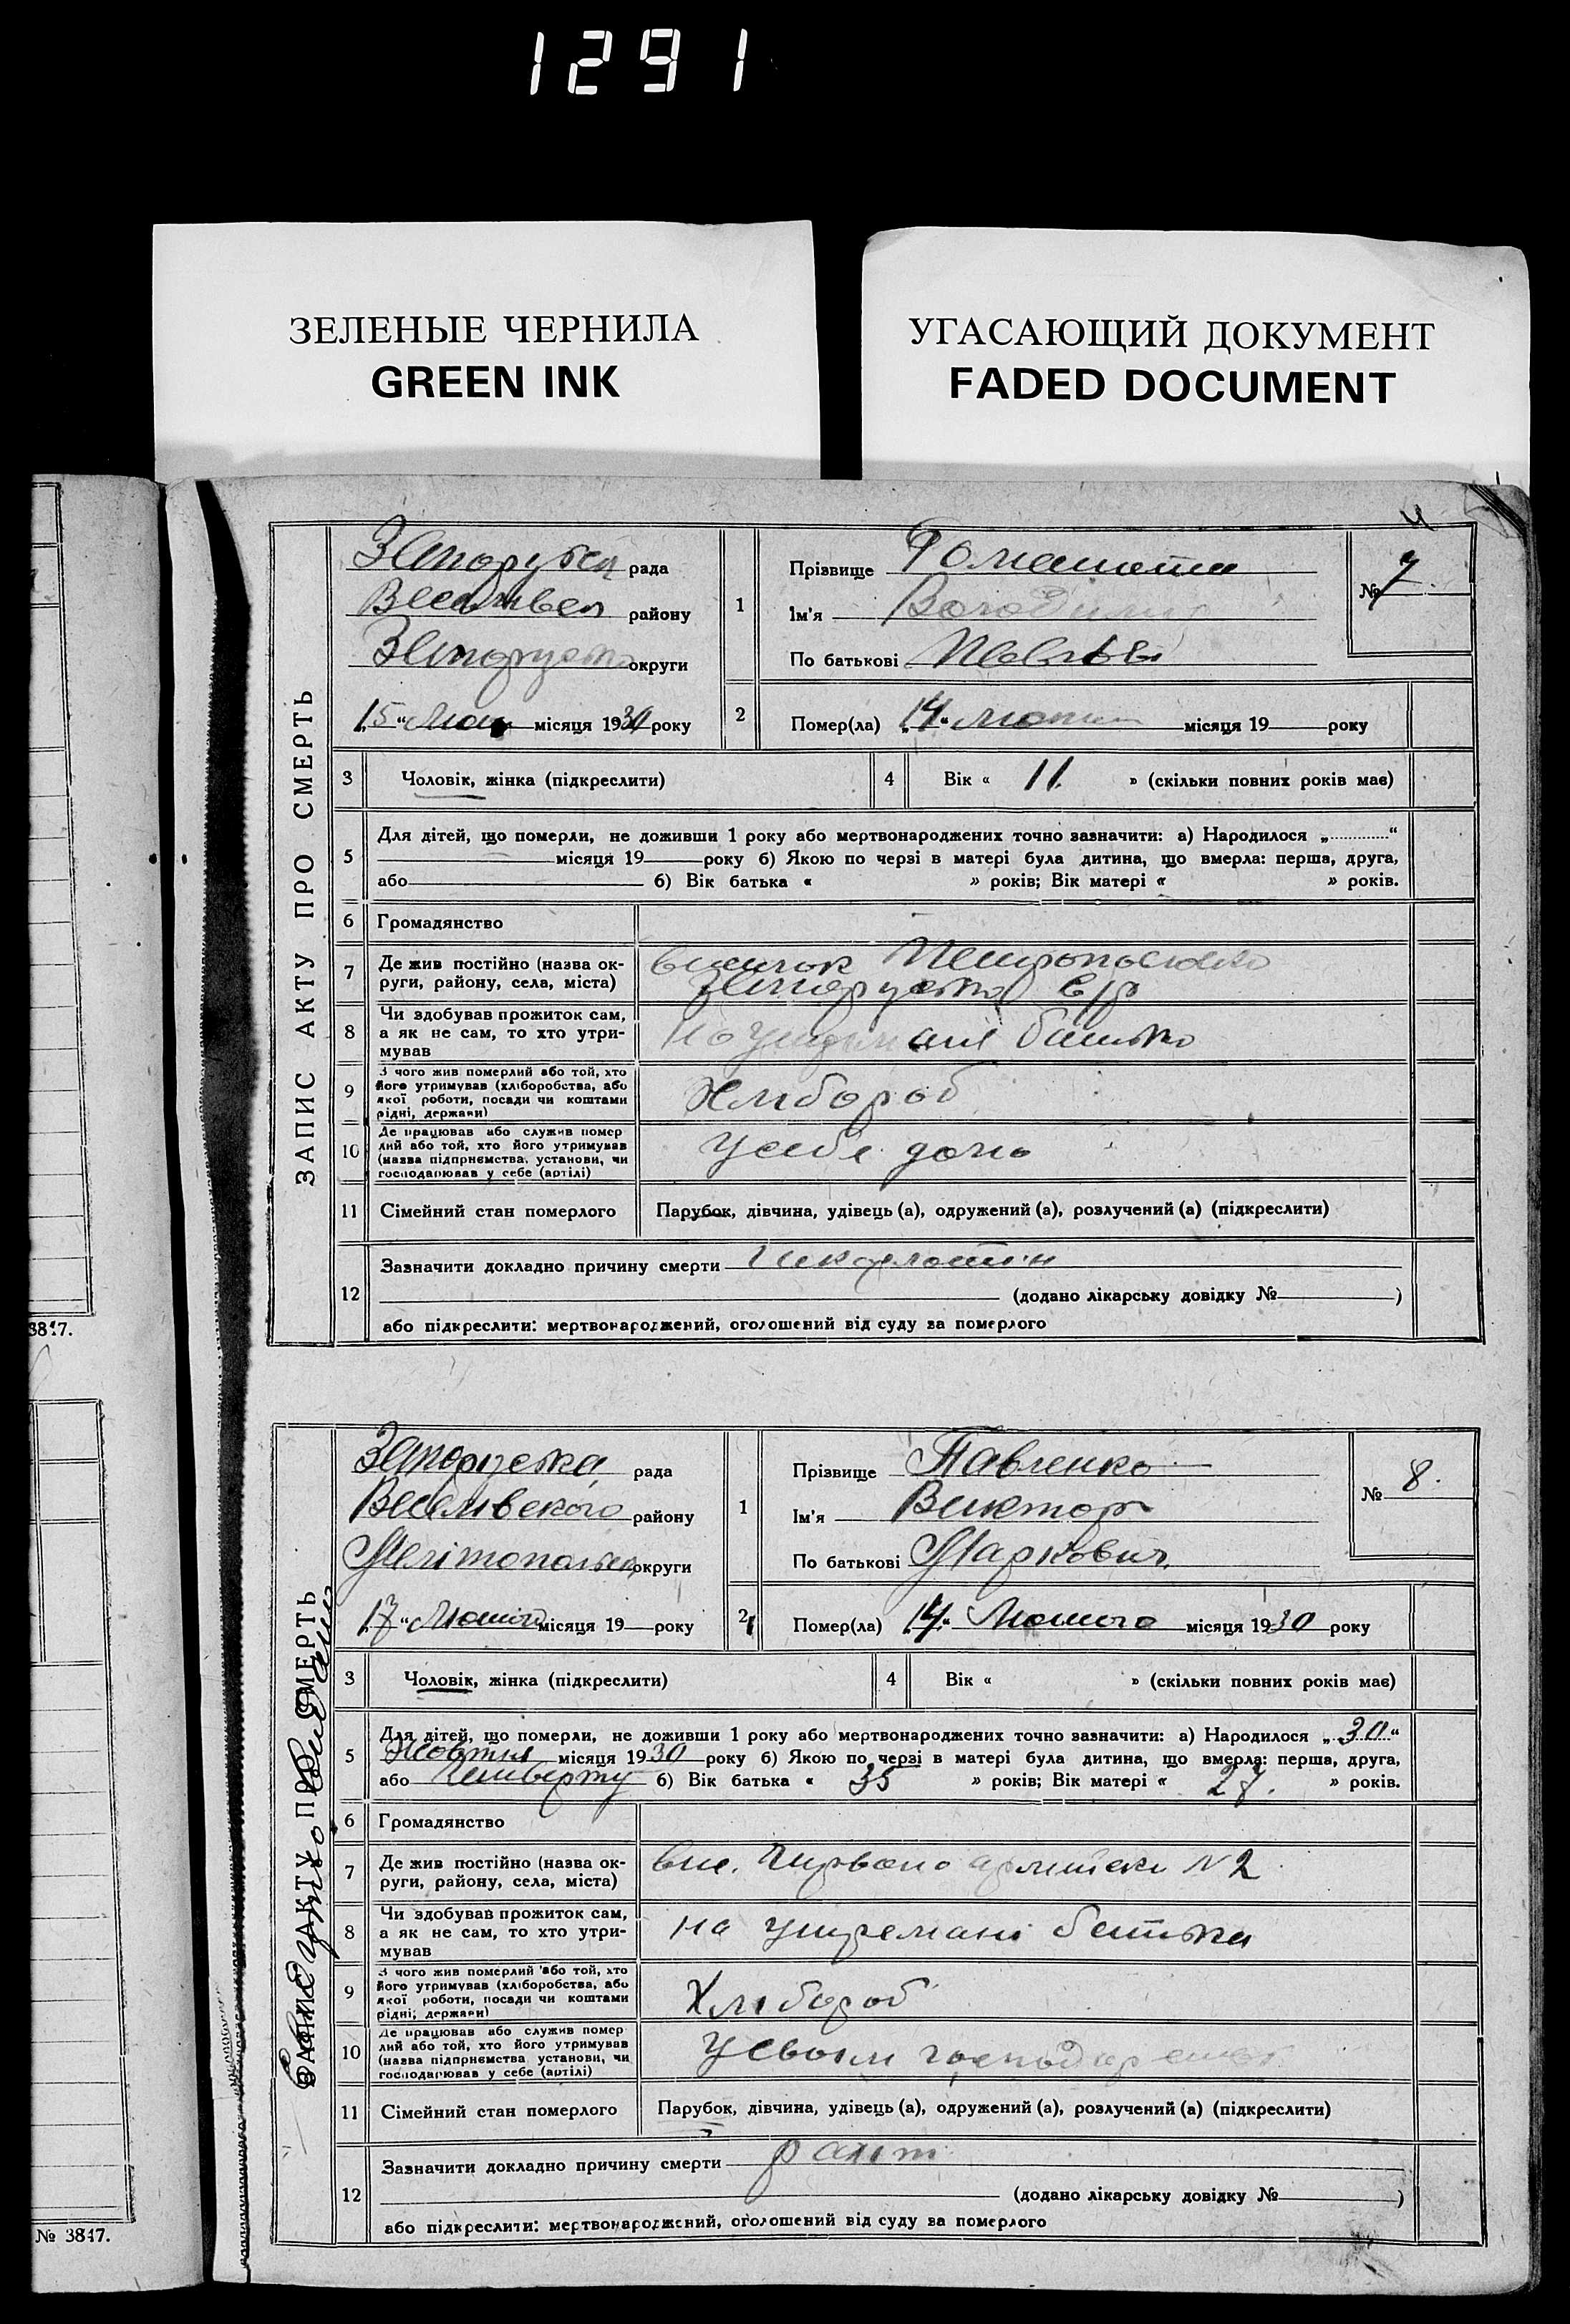 1291
ЗЕЛЕНЫЕ ЧЕРНИЛА
GREEN INK
УГАСАЮЩИЙ ДОКУМЕНТ
FADED DOCUMENT
3817.
№ 3817.
ЗАПИС АКТУ ПРО СМЕРТЬ
рада
району
округи
15 " місяця 1930 року
1
Прізвище
Ім'я Володимир
По батькові
№ 7.
2
Помер(ла) 14 " місяця 19 року
3
Чоловік, жінка (підкреслити)
4
Вік « 11. » (скільки повних років має)
5
Для дітей, що померли, не доживши 1 року або мертвонароджених точно зазначити: а) Народилося „ “
місяця 19 року б) Якою по черзі в матері була дитина, що вмерла: перша, друга,
або б) Вік батька « » років; Вік матері « » років.
6
Громадянство
7
Де жив постійно (назва ок-
руги, району, села, міста)
8
Чи здобував прожиток сам,
а як не сам, то хто утри-
мував
батька
9
З чого жив померлий або той, хто
його утримував (хліборобства, або
якої роботи, посади чи коштами
рідні, держави)
Хлібороб
10
Де працював або служив помер-
лий або той, хто його утримував
(назва підприємства, установи, чи
господарював у себе (артілі)
у себе дома
11
Сімейний стан померлого
Парубок, дівчина, удівець (а), одружений (а), розлучений (а) (підкреслити)
12
Зазначити докладно причину смерти
(додано лікарську довідку № )
або підкреслити: мертвонароджений, оголошений від суду за померлого
ЗАПИС АКТУ ПРО СМЕРТЬ
рада
району
округи
17 " Лютого місяця 19 року
1
Прізвище Павленко
Ім'я Виктор
По батькові Маркович
№ 8.
2
Помер(ла) 14 " Лютого місяця 1930 року
3
Чоловік, жінка (підкреслити)
4
Вік « » (скільки повних років має)
5
Для дітей, що померли, не доживши 1 року або мертвонароджених точно зазначити: а) Народилося „ 30 “
Жовтня місяця 1930 року б) Якою по черзі в матері була дитина, що вмерла: перша, друга,
або четверту б) Вік батька « 35 » років; Вік матері « 27. » років.
6
Громадянство
7
Де жив постійно (назва ок-
руги, району, села, міста)
вис. N 2
8
Чи здобував прожиток сам,
а як не сам, то хто утри-
мував
на утремані батька
9
З чого жив померлий або той, хто
його утримував (хліборобства, або
якої роботи, посади чи коштами
рідні, держави)
Хлібороб
10
Де працював або служив помер-
лий або той, хто його утримував
(назва підприємства, установи, чи
господарював у себе (артілі)
У своїм
11
Сімейний стан померлого
Парубок, дівчина, удівець (а), одружений (а), розлучений (а) (підкреслити)
12
Зазначити докладно причину смерти рахит
(додано лікарську довідку № )
або підкреслити: мертвонароджений, оголошений від суду за померлого